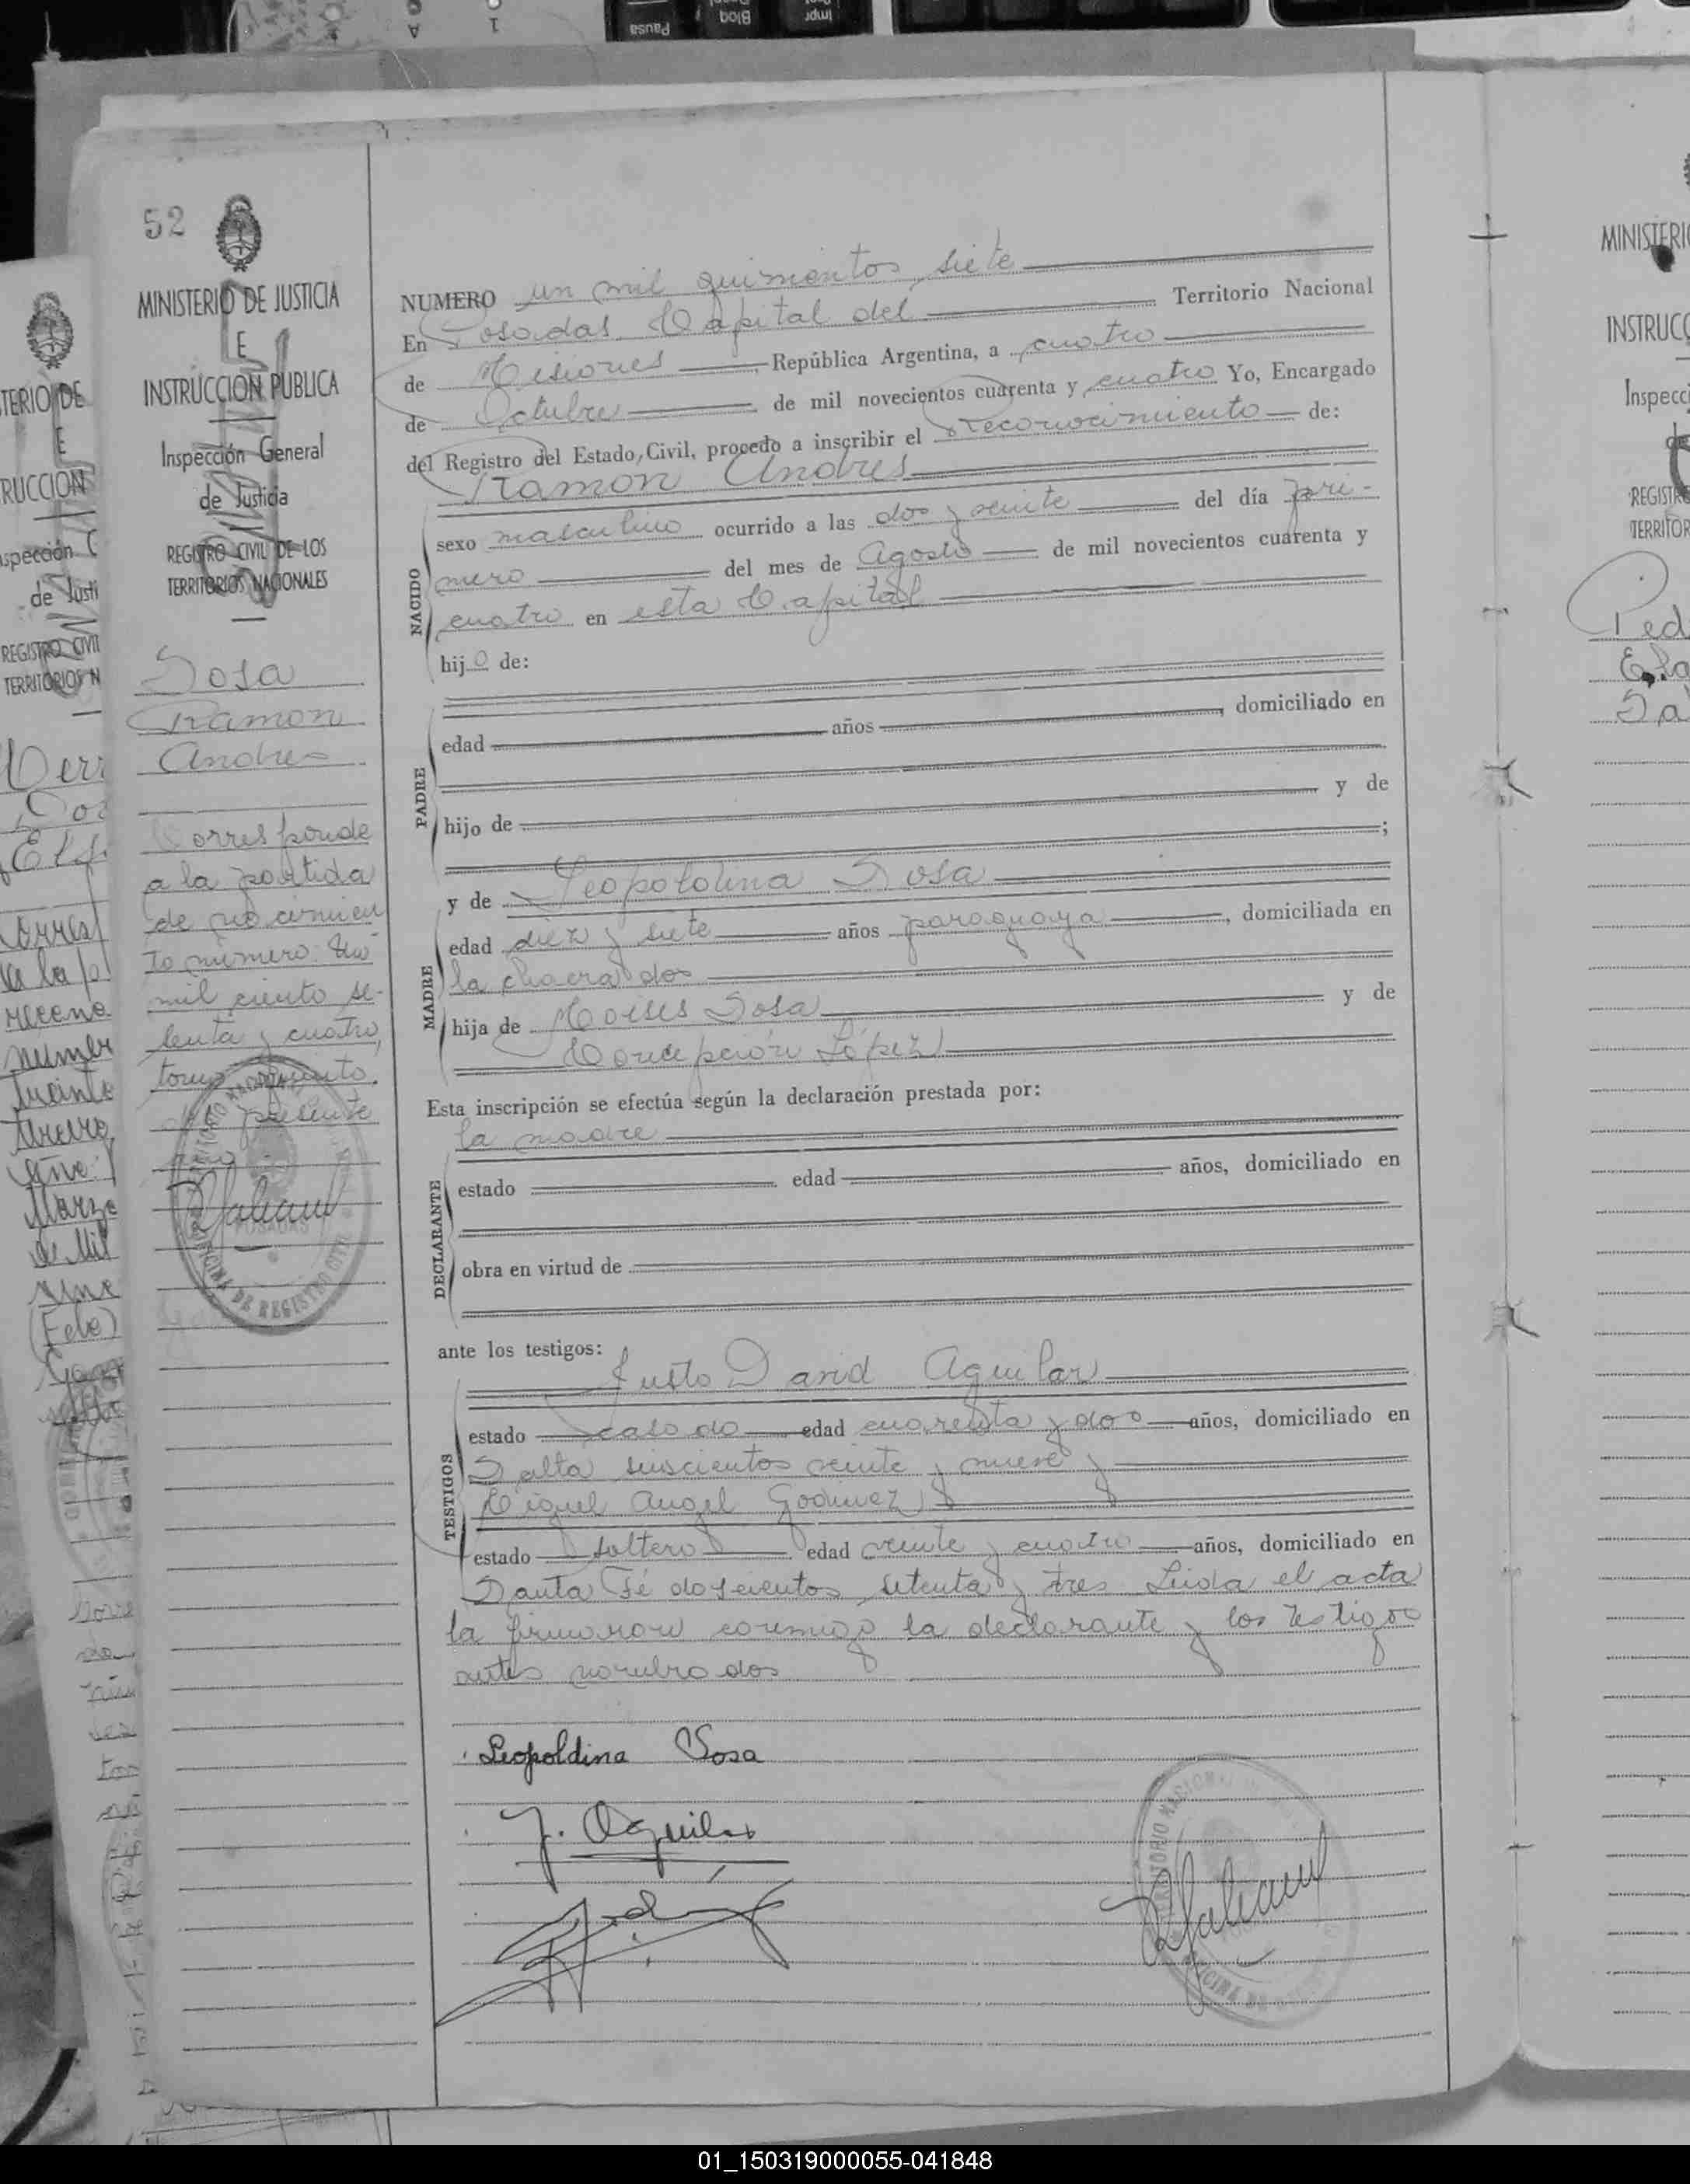 52
MINISTERIO DE JUSTICIA
E
INSTRUCCION PUBLICA
Inspección General
de Justicia
REGISTRO CIVIL DE LOS
TERRITORIOS NACIONALES
Sosa
Ramon
Andres
Corresponde
a la partida
de nacimien
to número: Un
mil ciento se-
tenta y cuatro,
tomo
del presente
NUMERO un mil quinientos siete
En Posadas, Capital del Territorio Nacional
de Misiones, República Argentina, a cuatro
de Octubre de mil novecientos cuarenta y cuatro Yo, Encargado
del Registro del Estado Civil, procedo a inscribir el reconocimiento de:
Ramon Andres
NACIDO
sexo masculino ocurrido a las dos y veinte del día pri-
mero del mes de Agosto de mil novecientos cuarenta y
cuatro en esta Capital
hijo de:
PADRE
edad años , domiciliado en
hijo de y de
;
MADRE
y de Leopoldina Sosa
edad diez y siete años paraguaya, domiciliada en
la chacra dos
hija de Moises Sosa y de
Concepción López
Esta inscripción se efectúa según la declaración prestada por:
la madre
DECLARANTE
estado edad años, domiciliado en
obra en virtud de
ante los testigos:
TESTIGOS
Justo David Aguilar
estado casado edad cuarenta y dos años, domiciliado en
Salta seiscientos veinte y nueve y
Miguel Angel Godinez
estado soltero edad veinte y cuatro años, domiciliado en
Santa Fé doscientos setenta y tres Leida el acta
la firmaron conmigo la declarante y los testigos
antes nombrados
Leopoldina Sosa
J. Aguilar
01_150319000055-041848